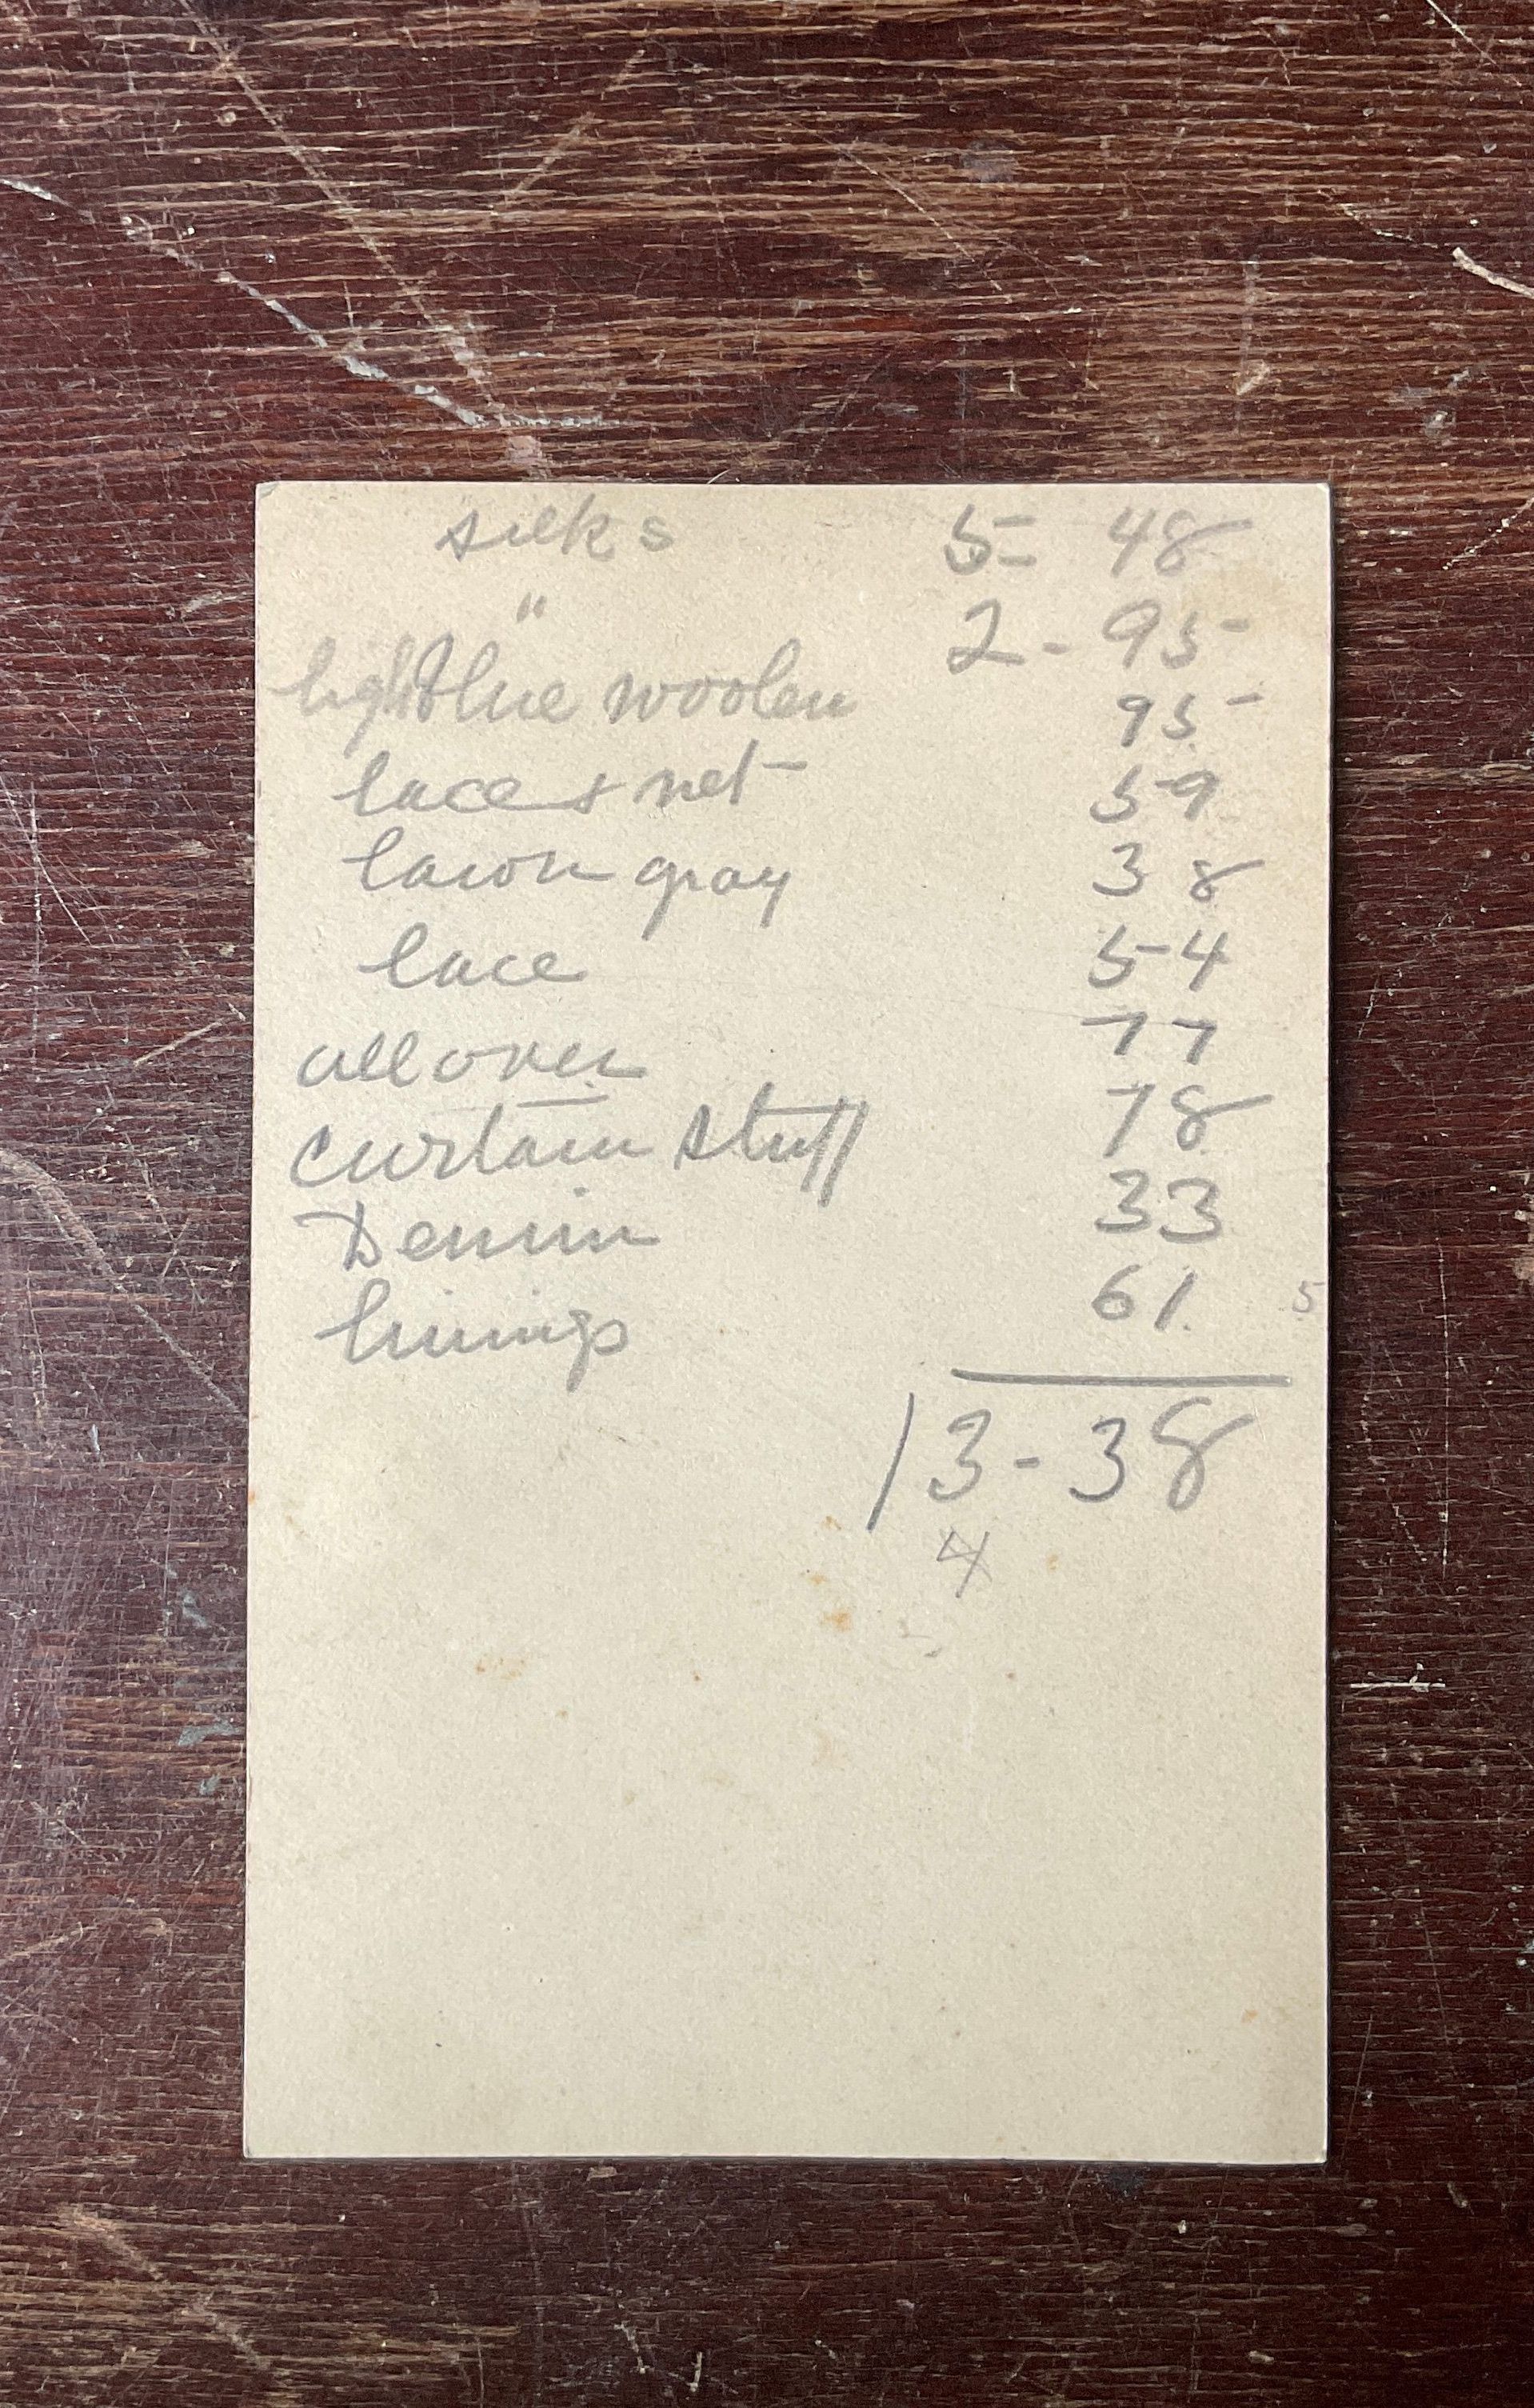 silks 5- 48
" 2 - 95
light blue woolen 95
lace & net 59
lawn gray 38
lace 54
all over 77
curtain stuff 78
Denim 33
linings 61 5
13 - 38
4